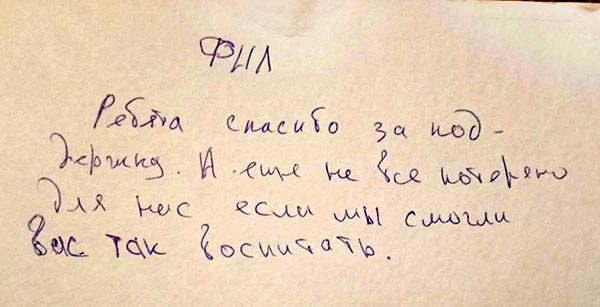 ФИЛ
Ребята спасибо за под-
держику. А еще не все потеряно
для нас если мы смогли
вас так воспитать.